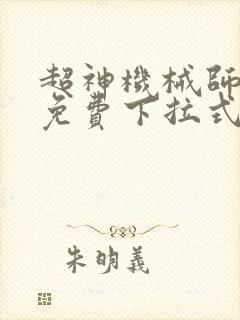 超神機械師
免費下拉式
朱明義